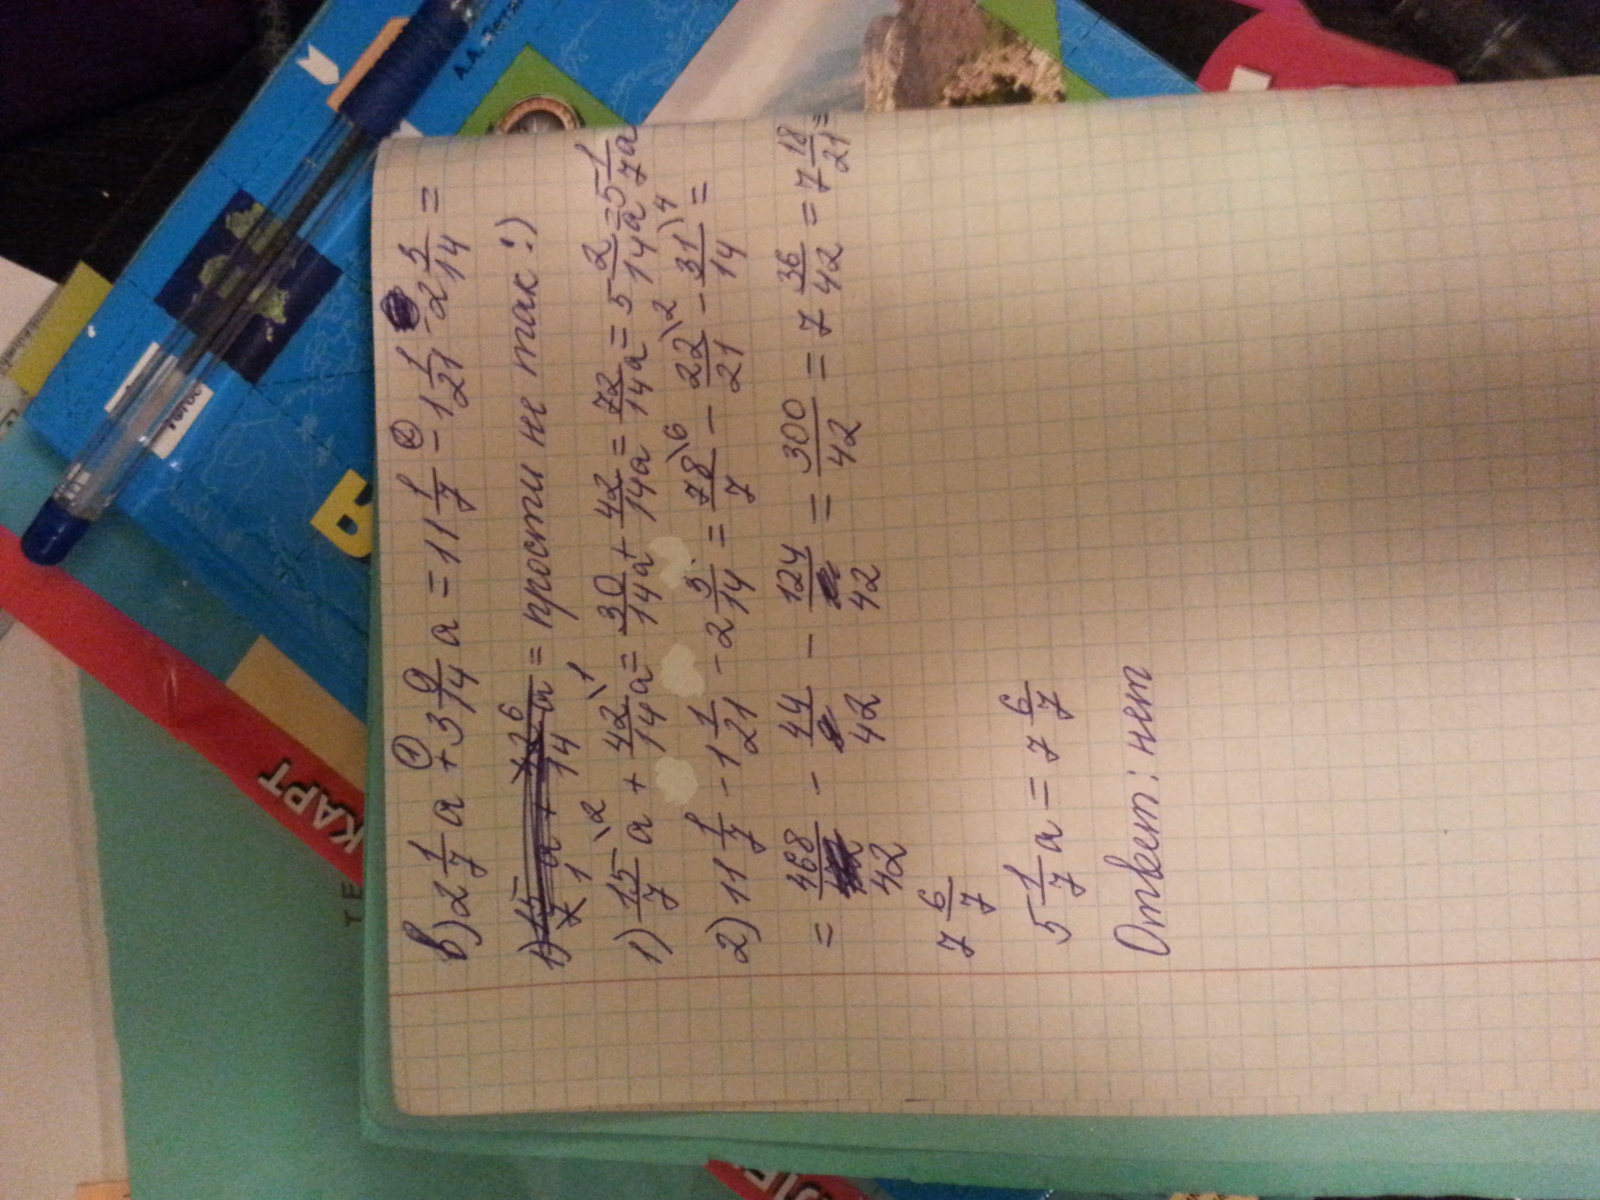 в) 2 1/7 a + 3 9/14 a = 11 1/7 - 1 1/21 - 2 3/14 =
= прости не так :)
1) 15/7 \2 a + 42/14 \1 a = 30/14 a + 42/14 a = 72/14 a = 5 2/14 a = 5 1/7 a
2) 11 1/7 - 1 1/21 - 2 3/14 = 78/7 \6 - 22/21 \2 - 31/14 \4 =
= 468/42 - 44/42 - 124/42 = 300/42 = 7 36/42 = 7 18/21 =
7 6/7
5 1/7 a = 7 6/7
Ответ: нет
КАРТ